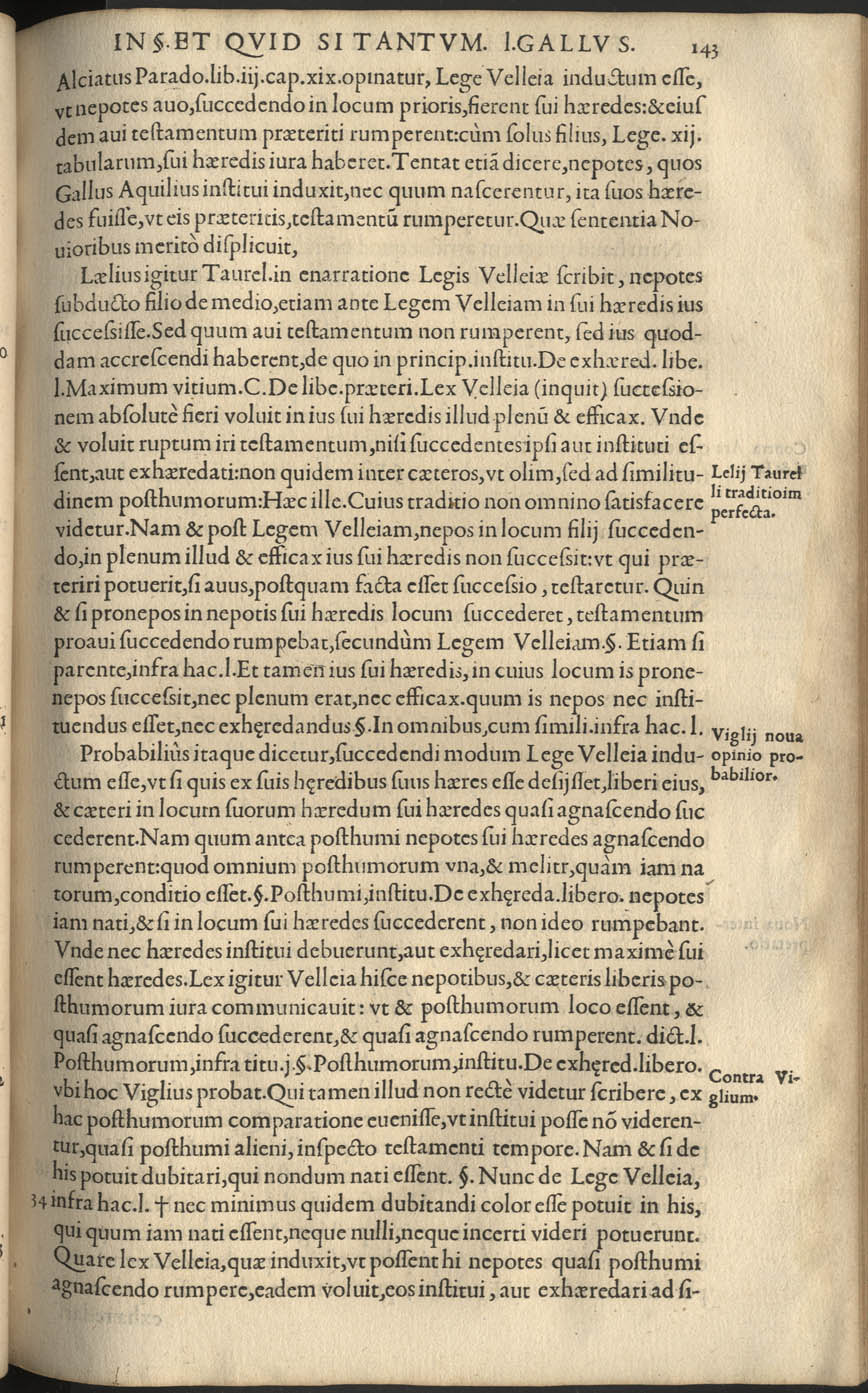 IN §. ET QVID SI TANTVM. l. GALLVS. 143
Alciatus Parado.lib.iij.cap.xix.opinatur, Lege Velleia inductum esse,
vt nepotes auo,succedendo in locum prioris,fierent sui hæredes:&eius
dem aui testamentum præteriti rumperent:cùm solus filius, Lege. xij.
tabularum,sui hæredis iura haberet.Tentat etiã dicere,nepotes, quos
Gallus Aquilius institui induxit,nec quum nascerentur, ita suos hære-
des fuisse,vt eis præteritis,testamentũ rumperetur.Quæ sententia No-
uioribus meritò displicuit,
Lælius igitur Taurel.in enarratione Legis Velleiæ scribit, nepotes
subducto filio de medio,etiam ante Legem Velleiam in sui hæredis ius
successisse.Sed quum aui testamentum non rumperent, sed ius quod-
dam accrescendi haberent,de quo in princip.institu.De exhæred. libe.
l.Maximum vitium.C.De libe.præteri.Lex Velleia (inquit) successio-
nem absolutè fieri voluit in ius sui hæredis illud plenũ & efficax. Vnde
& voluit ruptum iri testamentum,nisi succedentes ipsi aut instituti es-
sent,aut exhæredati:non quidem inter cæteros,vt olim,sed ad similitu-
dinem posthumorum:Hæc ille.Cuius traditio non omnino satisfacere
videtur.Nam & post Legem Velleiam,nepos in locum filij succeden-
do,in plenum illud & efficax ius sui hæredis non successit:vt qui præ-
teriri potuerit,si auus,postquam facta esset successio, testaretur. Quin
& si pronepos in nepotis sui hæredis locum succederet, testamentum
proaui succedendo rumpebat,secundùm Legem Velleiam.§. Etiam si
parente,infra hac.l.Et tamen ius sui hæredis, in cuius locum is prone-
nepos successit,nec plenum erat,nec efficax.quum is nepos nec insti-
tuendus esset,nec exhęredandus §.In omnibus,cum simili.infra hac. l.
Probabiliùs itaque dicetur,succedendi modum Lege Velleia indu-
ctum esse,vt si quis ex suis hęredibus suus hæres esse desijsset,liberi eius,
& cæteri in locum suorum hæredum sui hæredes quasi agnascendo suc
cederent.Nam quum antea posthumi nepotes sui hæredes agnascendo
rumperent:quod omnium posthumorum vna,& melitr,quàm iam na
torum,conditio esset.§.Posthumi,institu.De exhęreda.libero. nepotes
iam nati,& si in locum sui hæredes succederent, non ideo rumpebant.
Vnde nec hæredes institui debuerunt,aut exhęredari,licet maximè sui
essent hæredes.Lex igitur Velleia hisce nepotibus,& cæteris liberis po-
sthumorum iura communicauit: vt & posthumorum loco essent, &
quasi agnascendo succederent,& quasi agnascendo rumperent. dict.l.
Posthumorum,infra titu.j.§.Posthumorum,institu.De exhęred.libero.
vbi hoc Viglius probat.Qui tamen illud non rectè videtur scribere, ex
hac posthumorum comparatione euenisse,vt institui posse nõ videren-
tur,quasi posthumi alieni, inspecto testamenti tempore. Nam & si de
his potuit dubitari,qui nondum nati essent. §. Nunc de Lege Velleia,
34 infra hac.l. † nec minimus quidem dubitandi color esse potuit in his,
qui quum iam nati essent,neque nulli,neque incerti videri potuerunt.
Quare lex Velleia,quæ induxit,vt possent hi nepotes quasi posthumi
agnascendo rumpere,eadem voluit,eos institui, aut exhæredari ad si-
Lelij Taurel
li traditio im
perfecta.
Viglij noua
opinio pro-
babilior.
Contra Vi-
glium.